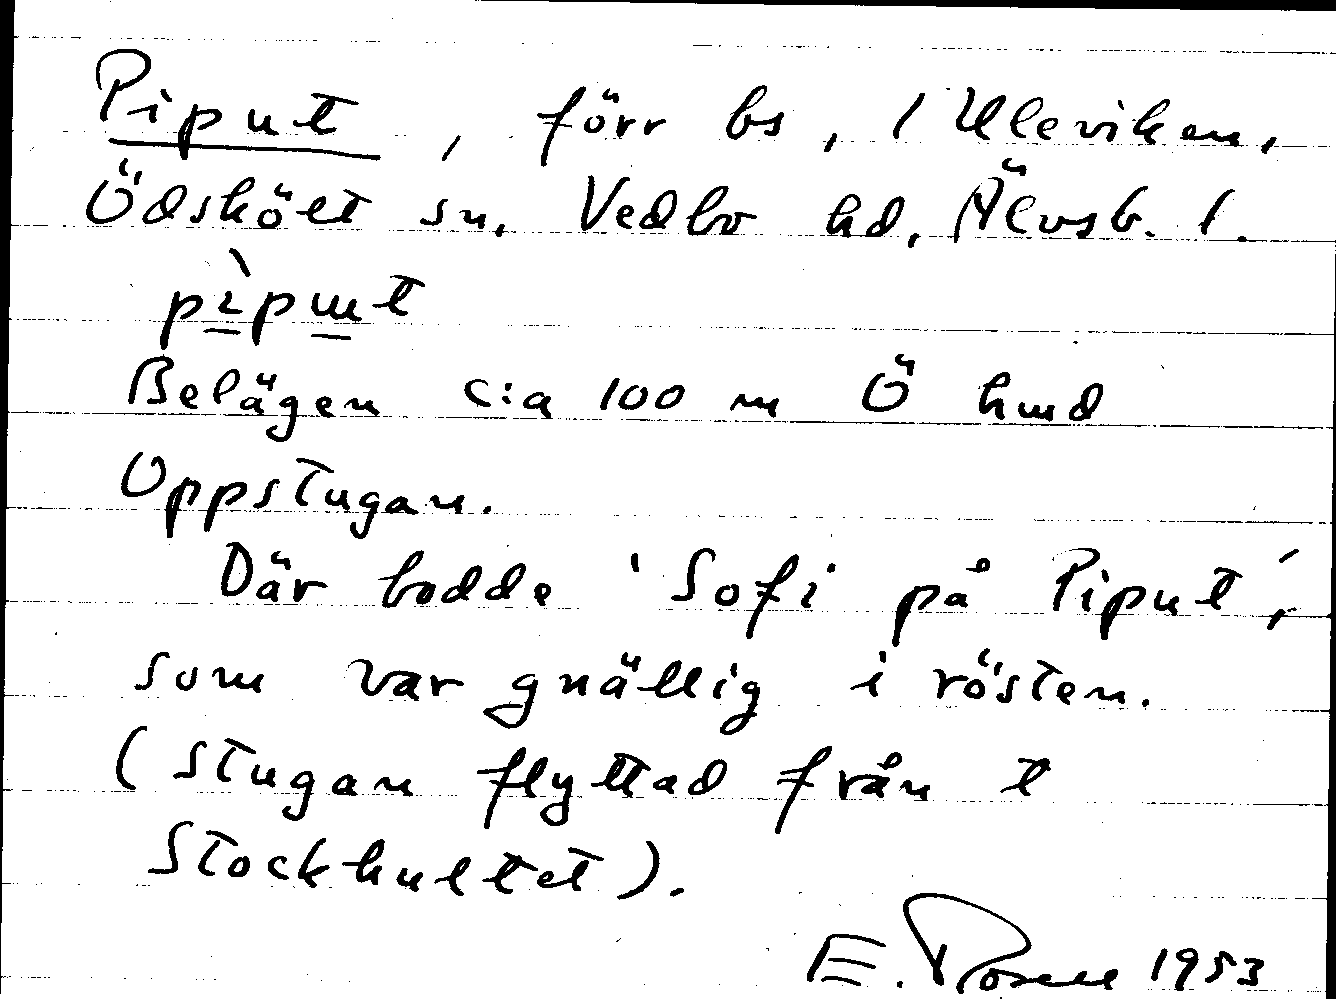 Piput, förr bs, 1 Uleviken,
Ödskölt sn, Vedbo hd, Älvsb. l.
pìpɯt
Belägen c:a 100 m Ö hmd
Uppstugan.
Där bodde 'Sofi på Piput',
som var gnällig i rösten.
(Stugan flyttad från t
Stockhultet).
E. Rosell 1953